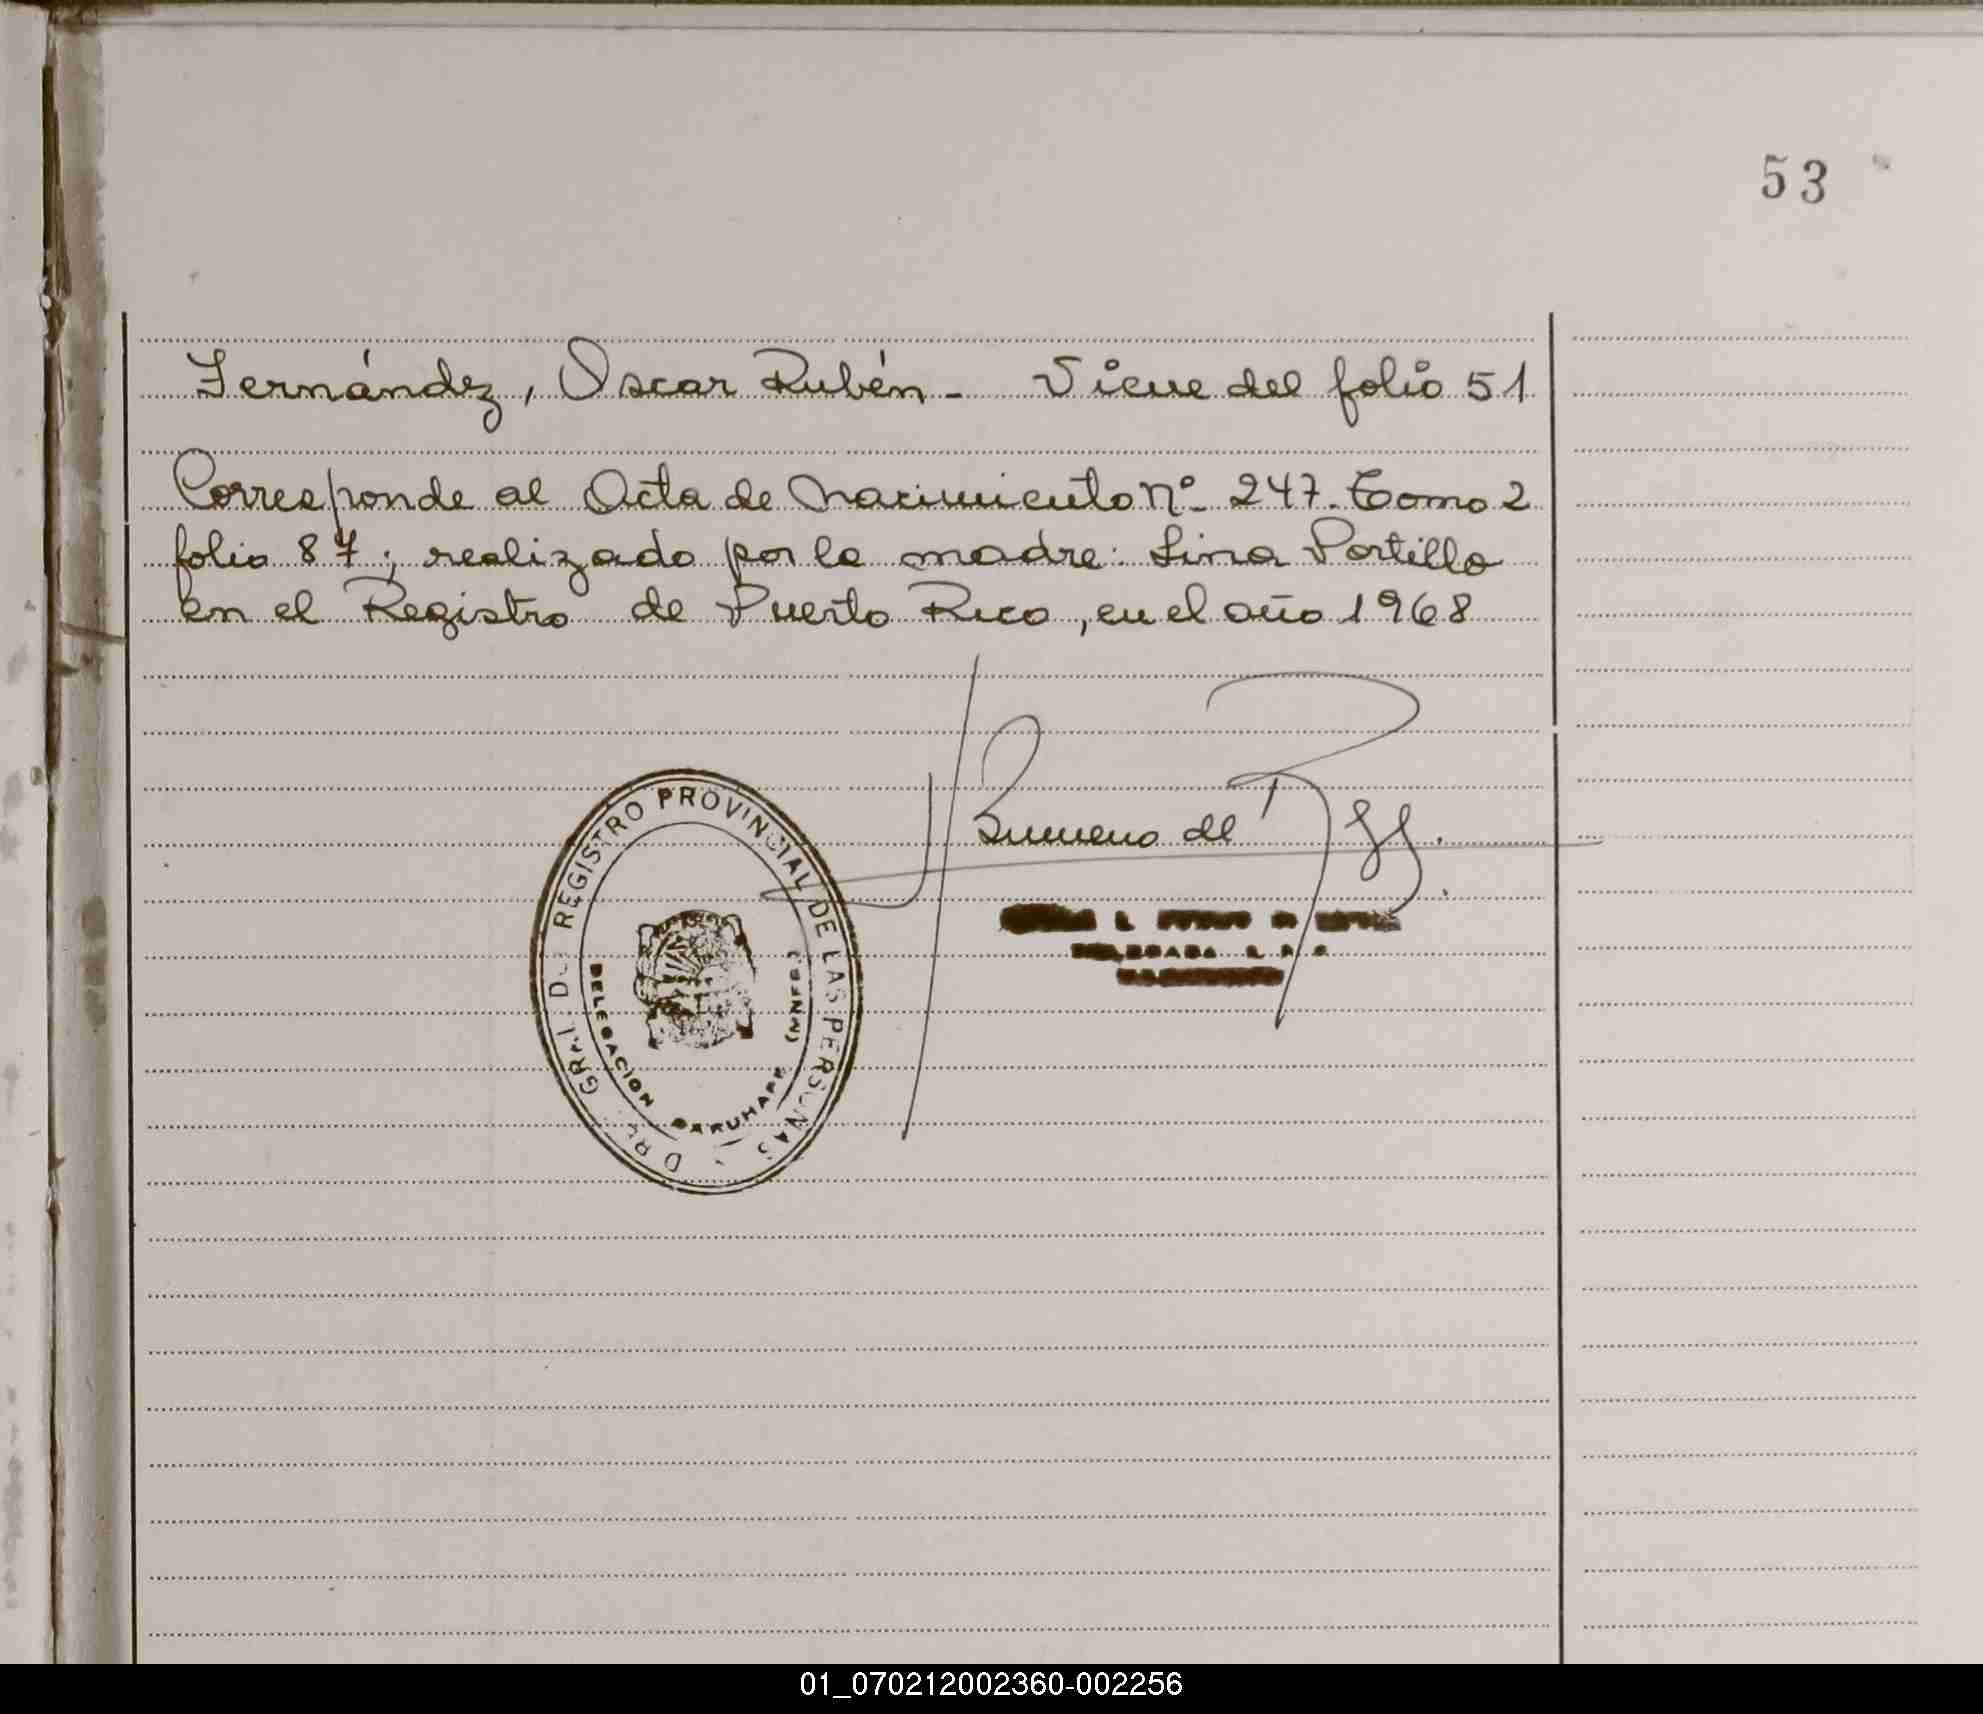 53
Fernández, Oscar Rubén - Viene del folio 51
Corresponde al Acta de Nacimiento Nº 247. Tomo 2
folio 87; realizado por la madre: Lina Portillo
en el Registro de Puerto Rico, en el año 1968
REGISTRO PROVINCIAL DE LAS PERSONAS
DELEGACION GARUHAPE (MNES)
de
DELEGADA R. P. P.
01_070212002360-002256